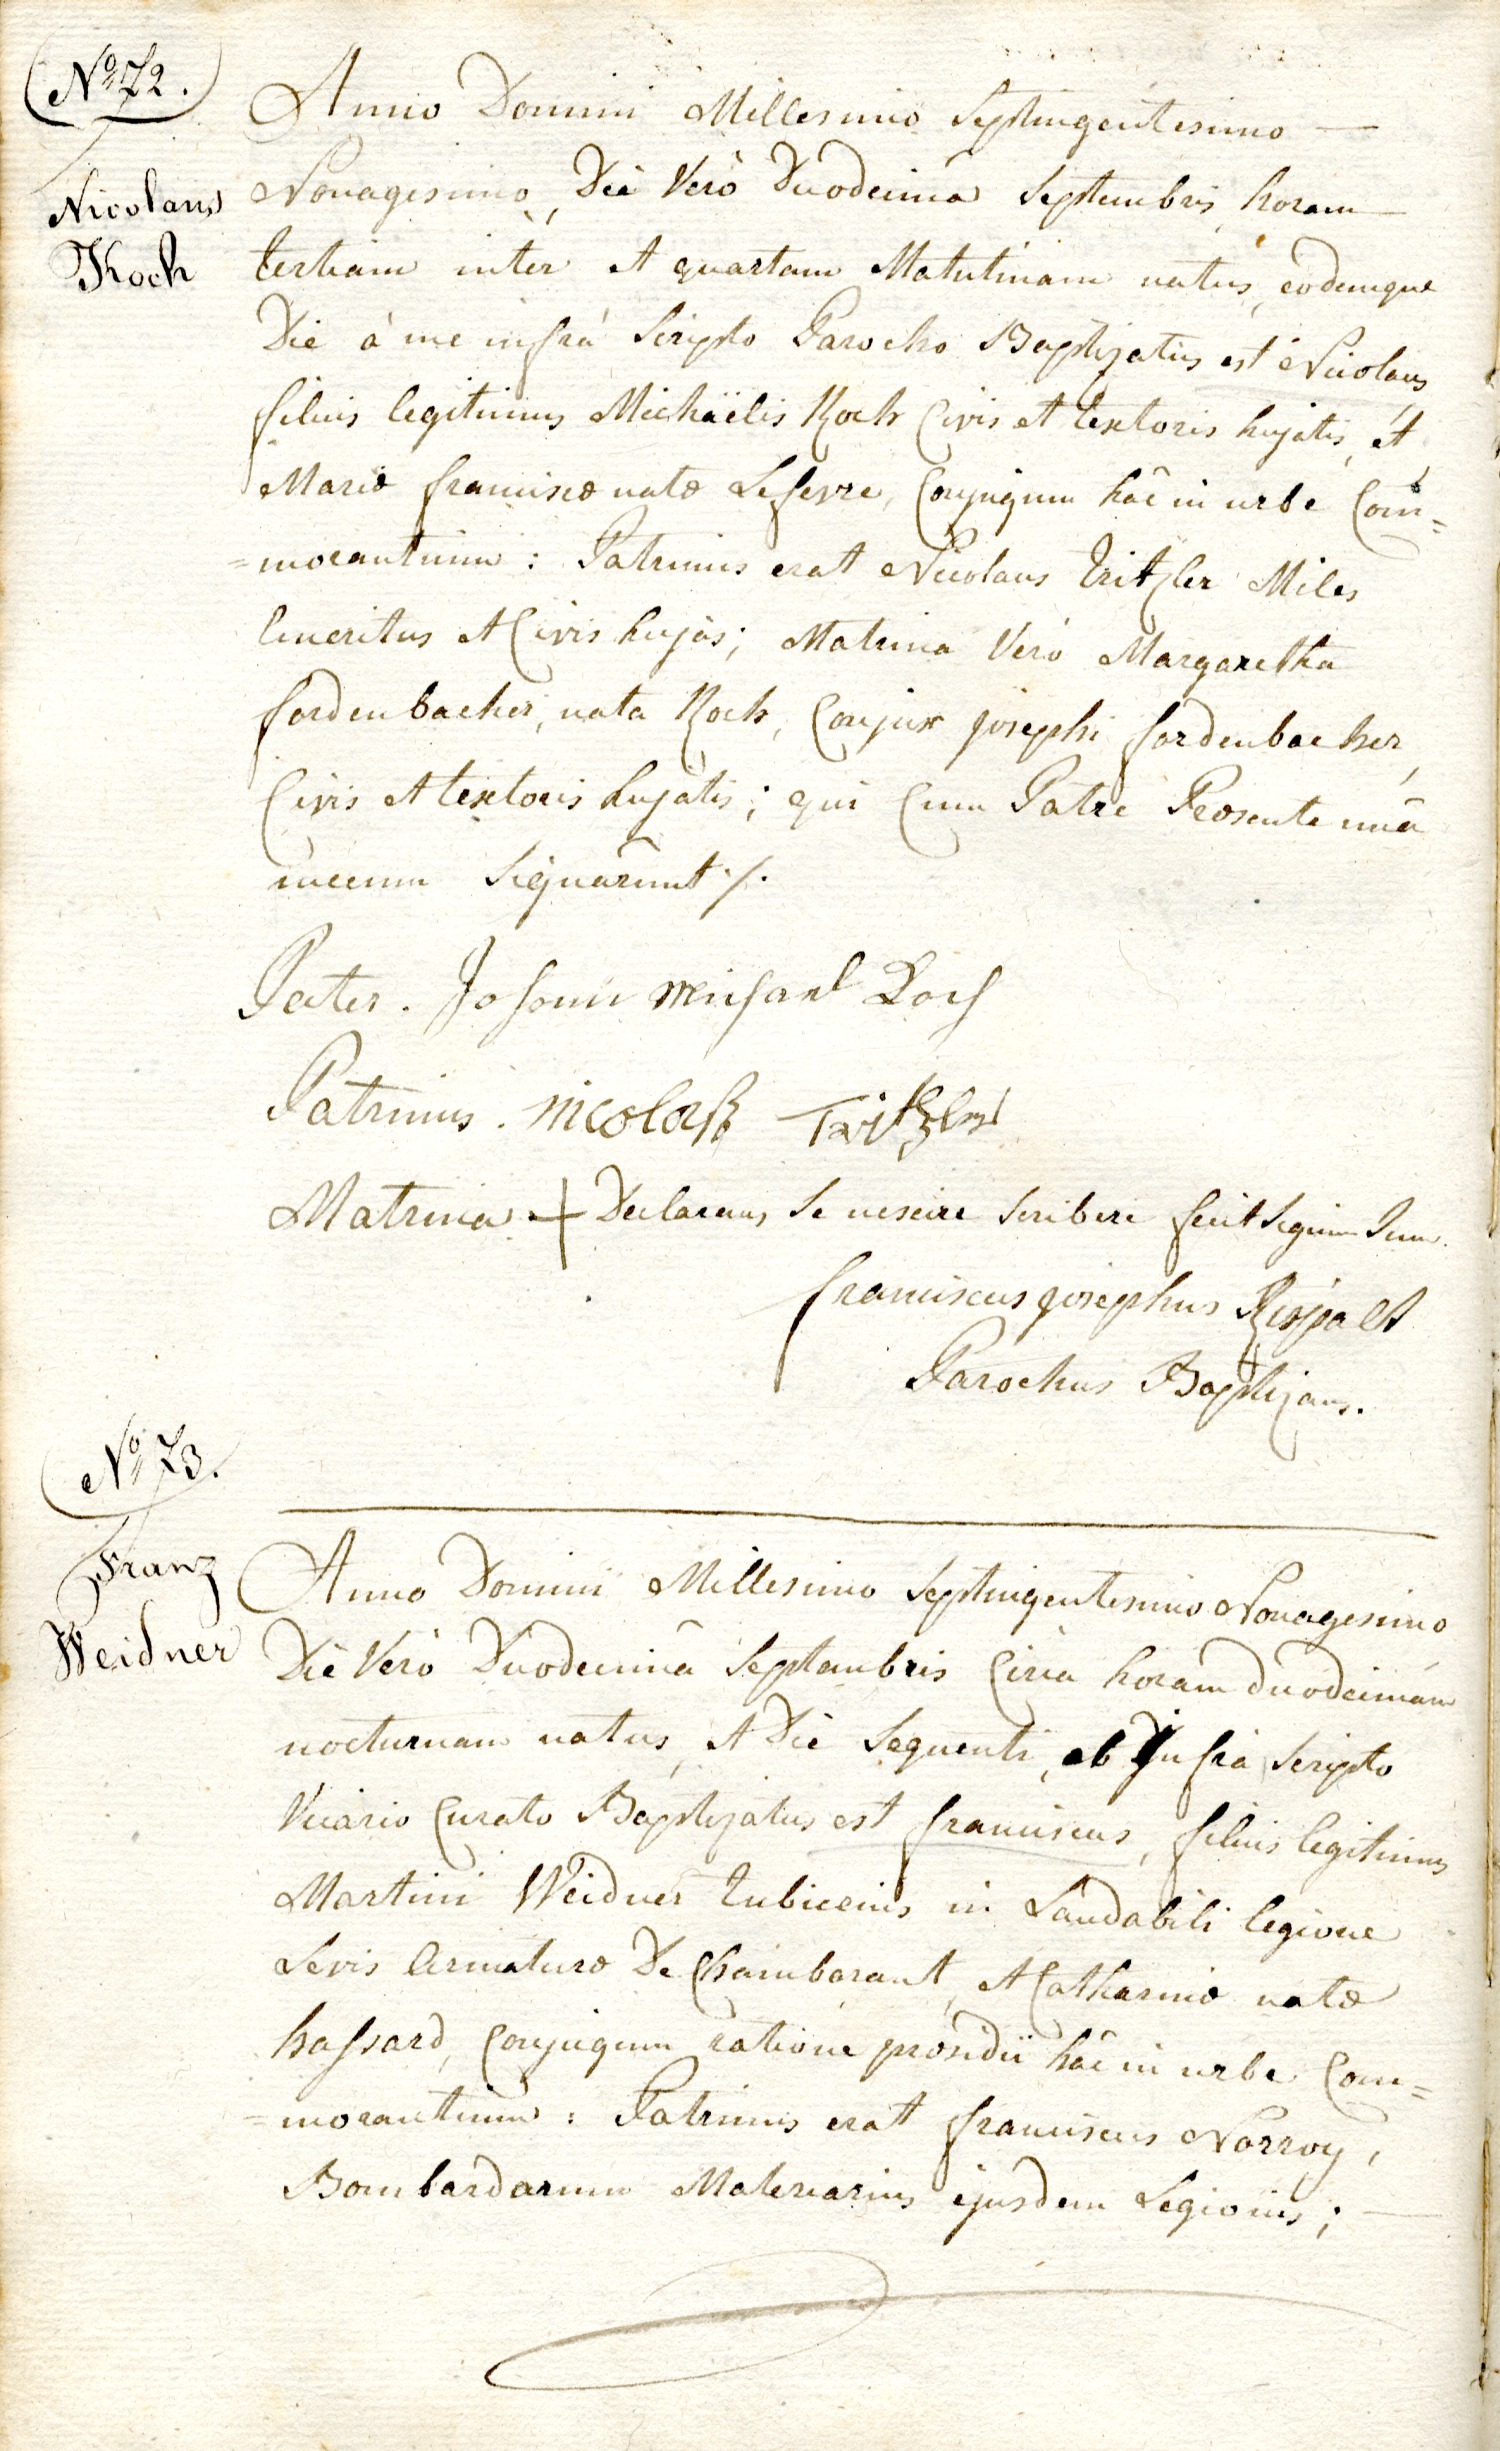 No 72.
Nicolaus
Koch
Anno Domini Millesimo Septingentesimo —
Nonagesimo, Die Verò Duodecimâ Septembris, horam
tertiam inter et quartam Matutinam natus, eodemque
Die à me infrà Scripto Parocho Baptizatus est Nicolaus,
filius legitimus Michaëlis Koch Civis et textoris hujatis, et
Mariæ franciscæ natæ Lefevre, Conjugum hâc in urbe Com=
=morantium : Patrinus erat Nicolaus Tritzler Miles
Emeritus et Civis hujas; Matrina Verò Margaretha
fordenbacher, nata Koch, Conjux josephi fordenbacher,
Civis et textoris hujatis; qui Cum Patre Præsente unâ
mecum Signarunt ./.
Pater. Johann Michael Koch
Patrinus. Nicolaß Tritzler
Matrina + Declarans se nescire scribere fecit signum suum.
franciscus josephus
Parochus Baptizans.
No 73.
Franz
Weidner
Anno Domini Millesimo Septingentesimo Nonagesimo
Die Verò Duodecimâ Septembris Circa horam duodecimam
nocturnam natus, et Die Sequenti, ab Infrà Scripto
Vicario Curato Baptizatus est franciscus, filius legitimus
Martini Weidner tubicenis in Laudabili legione
Levis Armaturæ De Chamborant, et Catharinæ natæ
hassard, Conjugum ratione præsidii hâc in urbe Com=
=morantium : Patrinus erat franciscus Norroy,
Bombardarum Materiarius ejusdem Legionis; —